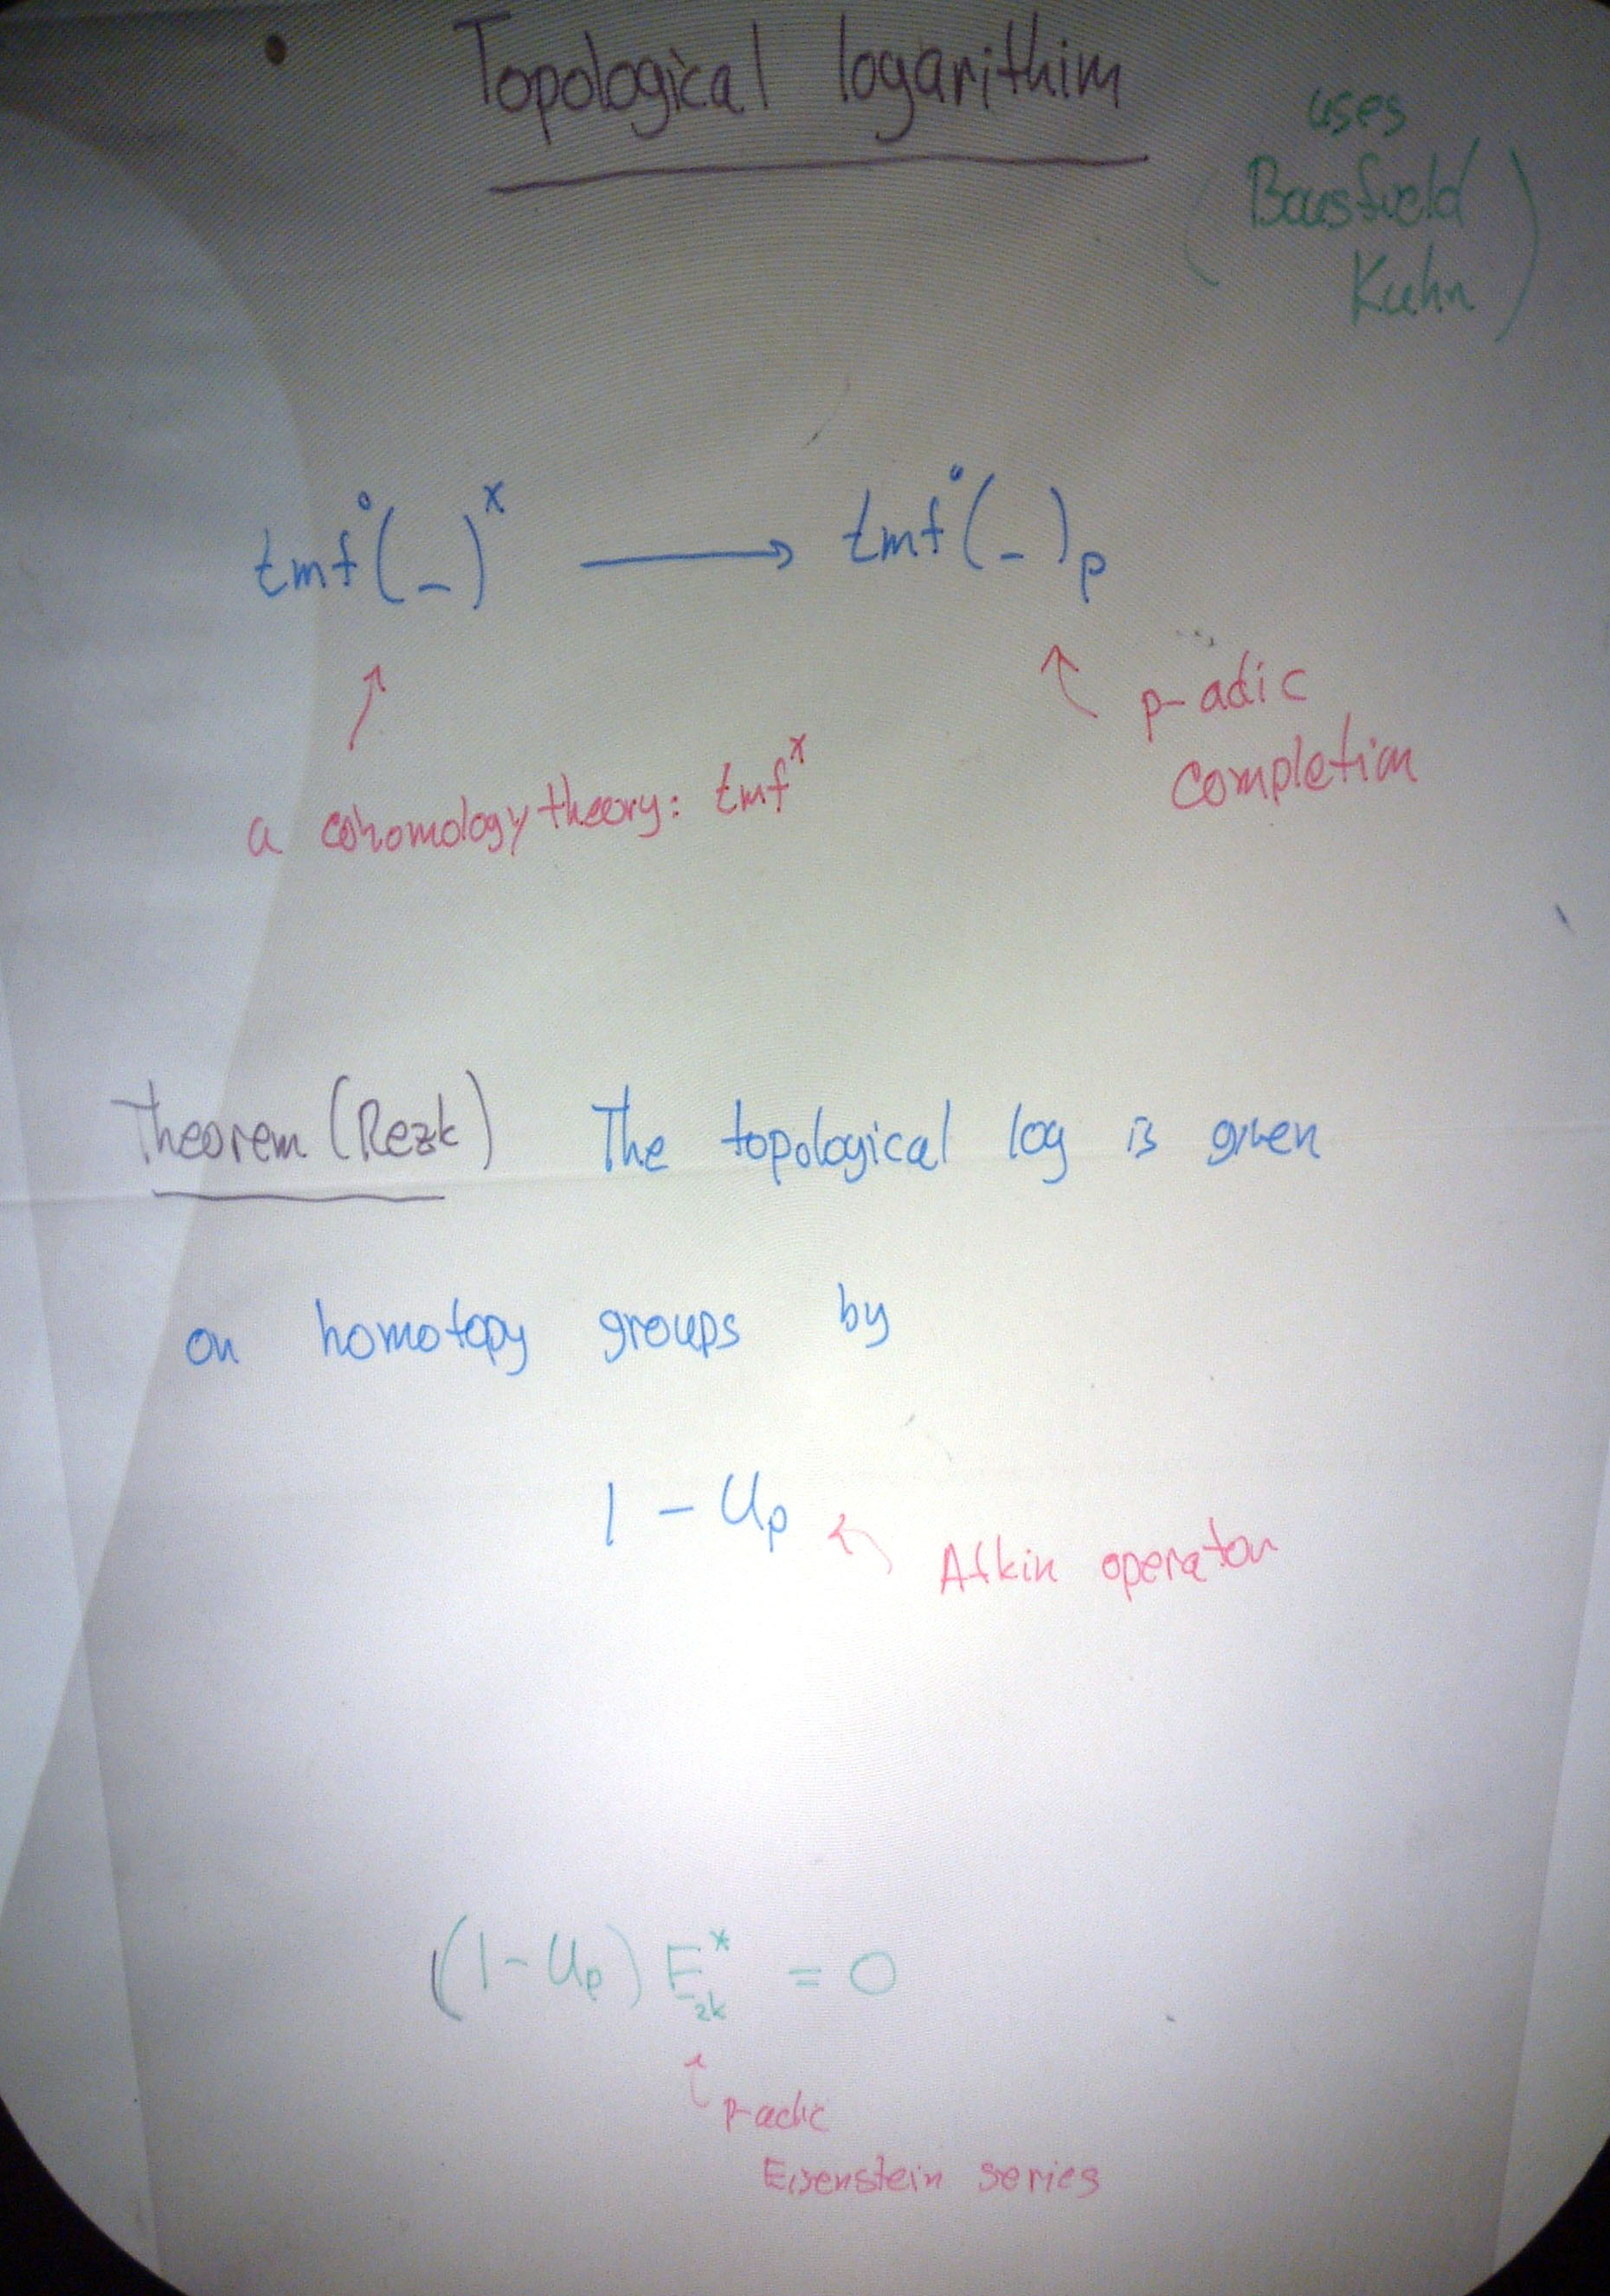 • Topological logarithim
uses
(Bousfield
Kuhn)
tmf°(_)^x ⟶ tmf°(_)_p
↑ a cohomology theory: tmf^x
↑ p-adic
completion
Theorem (Rezk) The topological log is given
on homotopy groups by
1 - U_p
Atkin operator
(1 - U_p) E^*_{2k} = 0
p-adic
Eisenstein series